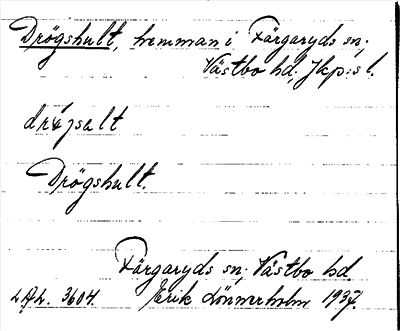 Drögshult, hemman i Färgaryds sn;
Västbo hd; Jkp:s l.
Drögshult.
Färgaryds sn; Västbo hd
3604. Erik Lönnerholm 1937.